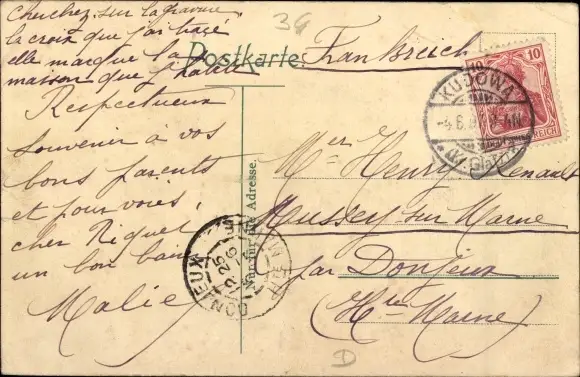 cherchez sur la gravure
la croix que j'ai tracé
elle marque la
maison que j'habite
Respectueux
souvenir à vos
bons parents
et pour vous,
cher Riquet
un bon bai
Malie
36
Postkarte
Frankreich
10
REICH
KUDOWA
-4.6.
Mr Henry Renault
Mussey sur Marne
par Donjeux
(Hte Marne)
Adresse.
DONJEUX
25
6
D